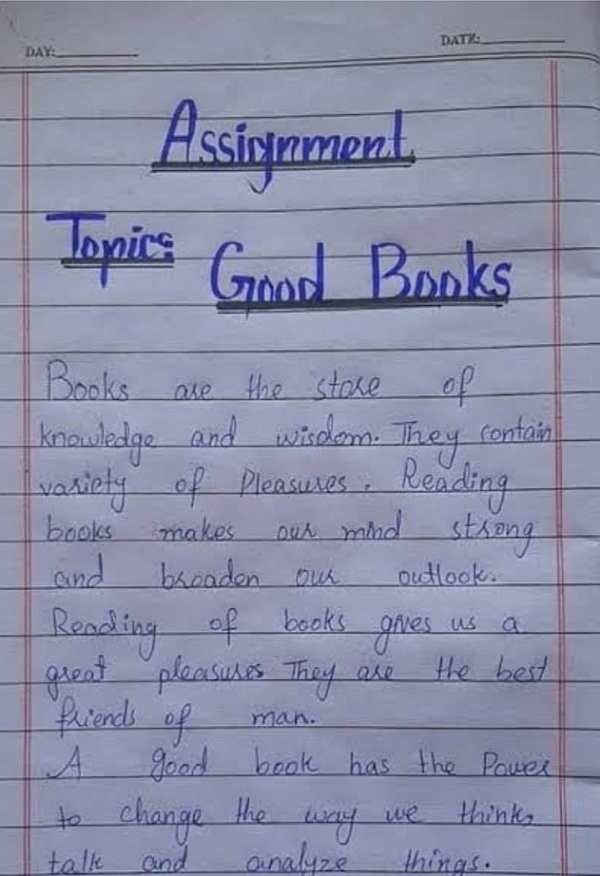 DAY:
DATE:
Assignment
Topic:
Good Books
Books are the store of
knowledge and wisdom. They contain
variety of Pleasures. Reading
books makes our mind strong
and broaden our outlook.
Reading of books gives us a
great pleasures They are the best
friends of man.
A good book has the Power
to change the way we think,
talk and analyze things.